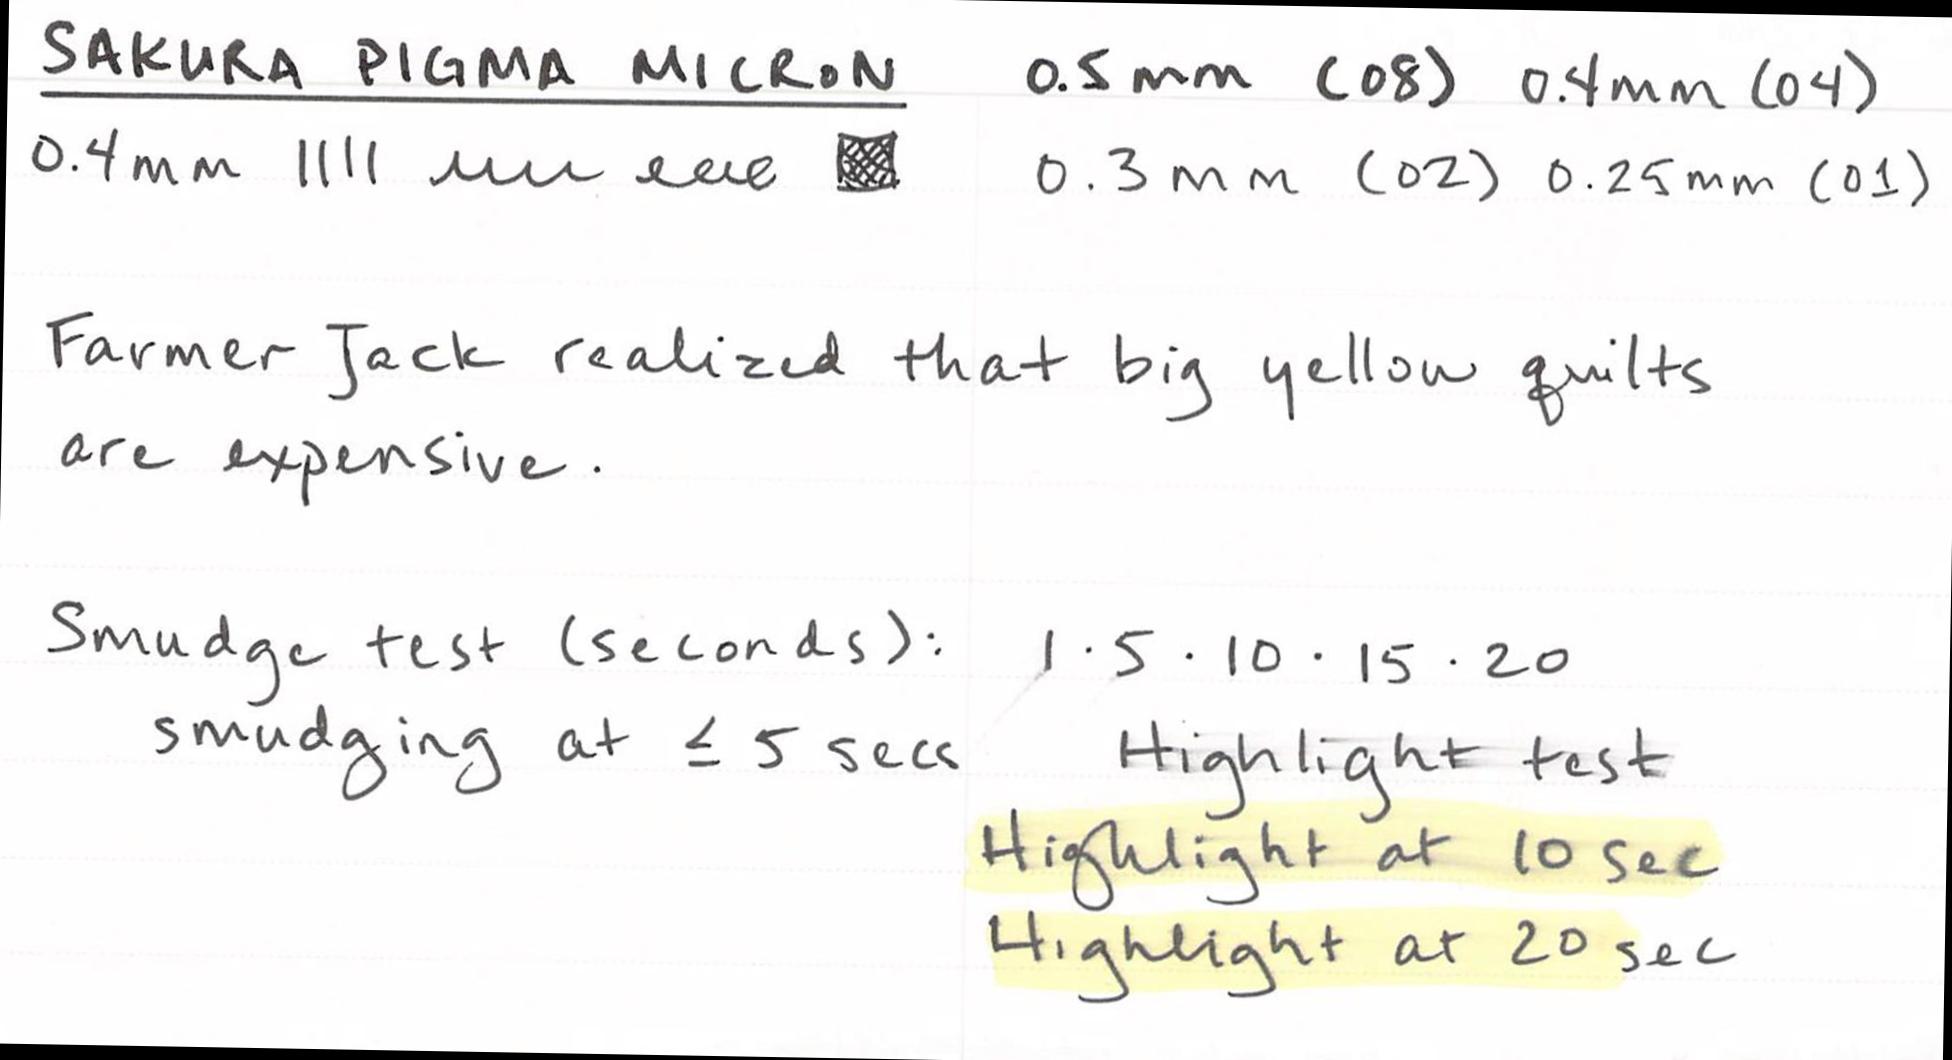 SAKURA PIGMA MICRON
0.4mm
0.5mm (08) 0.4mm (04)
0.3mm (02) 0.25mm (01)
Farmer Jack realized that big yellow quilts
are expensive.
Smudge test (seconds): 1 · 5 · 10 · 15 · 20
smudging at ≤ 5 secs
Highlight test
Highlight at 10 sec
Highlight at 20 sec